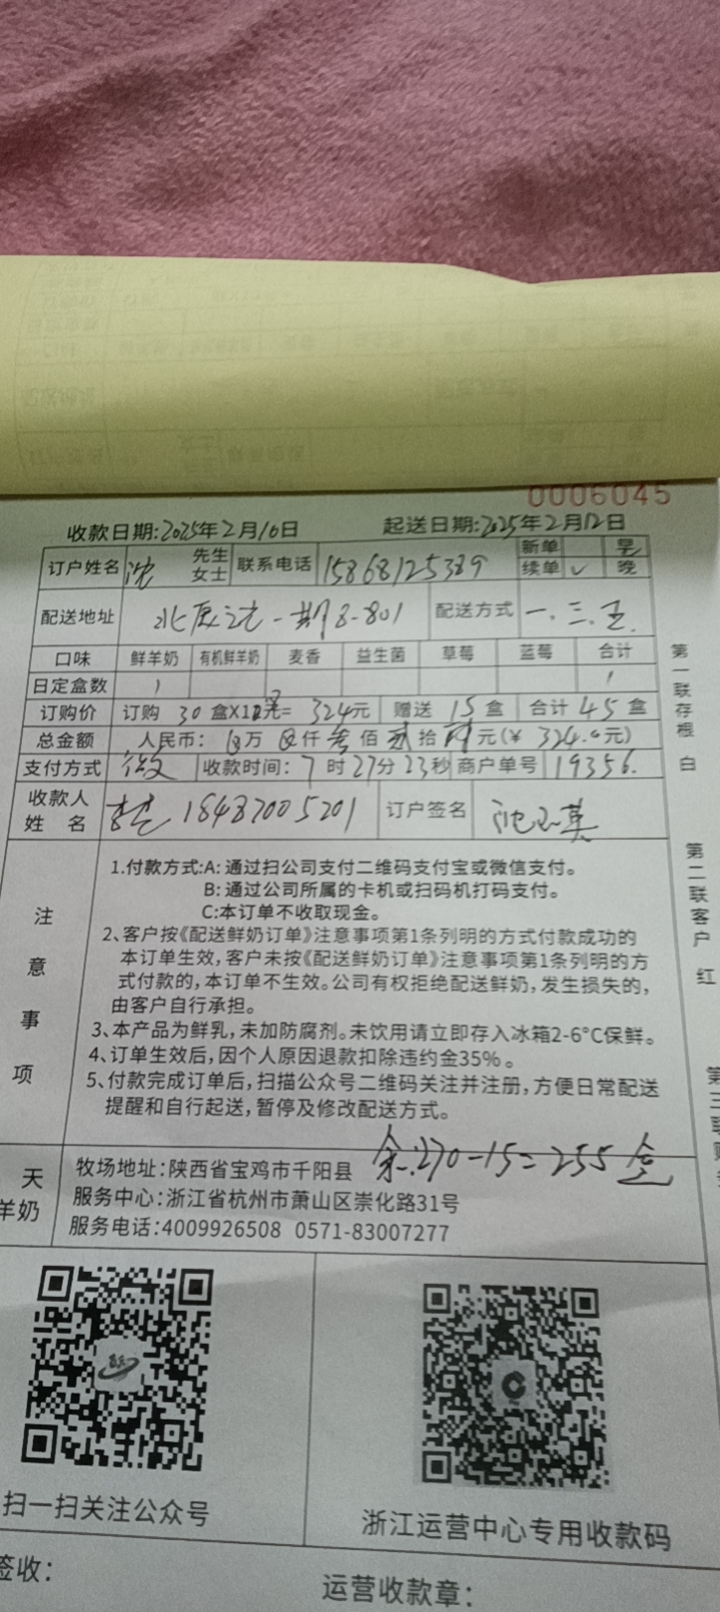 0006045
收款日期:2025年2月10日 起送日期:2025年2月12日
订户姓名 沈 先生 女士 联系电话 15868125389 新单 早 续单 ✓ 晚
配送地址 北辰之光一期8-801 配送方式 一.三.五.
口味 鲜羊奶 有机鲜羊奶 麦香 益生菌 草莓 蓝莓 合计
日定盒数 1 1
订购价 订购 30 盒X12元= 324元 赠送 15 盒 合计 45 盒
总金额 人民币: 万 仟 叁 佰 贰 拾 肆 元(¥ 324.0元)
支付方式 微 收款时间: 7 时 27分 23秒 商户单号 19356.
收款人姓 名 李 18437005201 订户签名 沈玉英
注意事项
1.付款方式:A: 通过扫公司支付二维码支付宝或微信支付。
B: 通过公司所属的卡机或扫码机打码支付。
C:本订单不收取现金。
2、客户按《配送鲜奶订单》注意事项第1条列明的方式付款成功的
本订单生效，客户未按《配送鲜奶订单》注意事项第1条列明的方
式付款的，本订单不生效。公司有权拒绝配送鲜奶，发生损失的，
由客户自行承担。
3、本产品为鲜乳，未加防腐剂。未饮用请立即存入冰箱2-6°C保鲜。
4、订单生效后，因个人原因退款扣除违约金35%。
5、付款完成订单后，扫描公众号二维码关注并注册，方便日常配送
提醒和自行起送，暂停及修改配送方式。
余:270-15=255盒
天
羊奶
牧场地址:陕西省宝鸡市千阳县
服务中心:浙江省杭州市萧山区崇化路31号
服务电话:4009926508 0571-83007277
扫一扫关注公众号
浙江运营中心专用收款码
签收:
运营收款章:
第一联存根 白
第二联客户 红
第三联